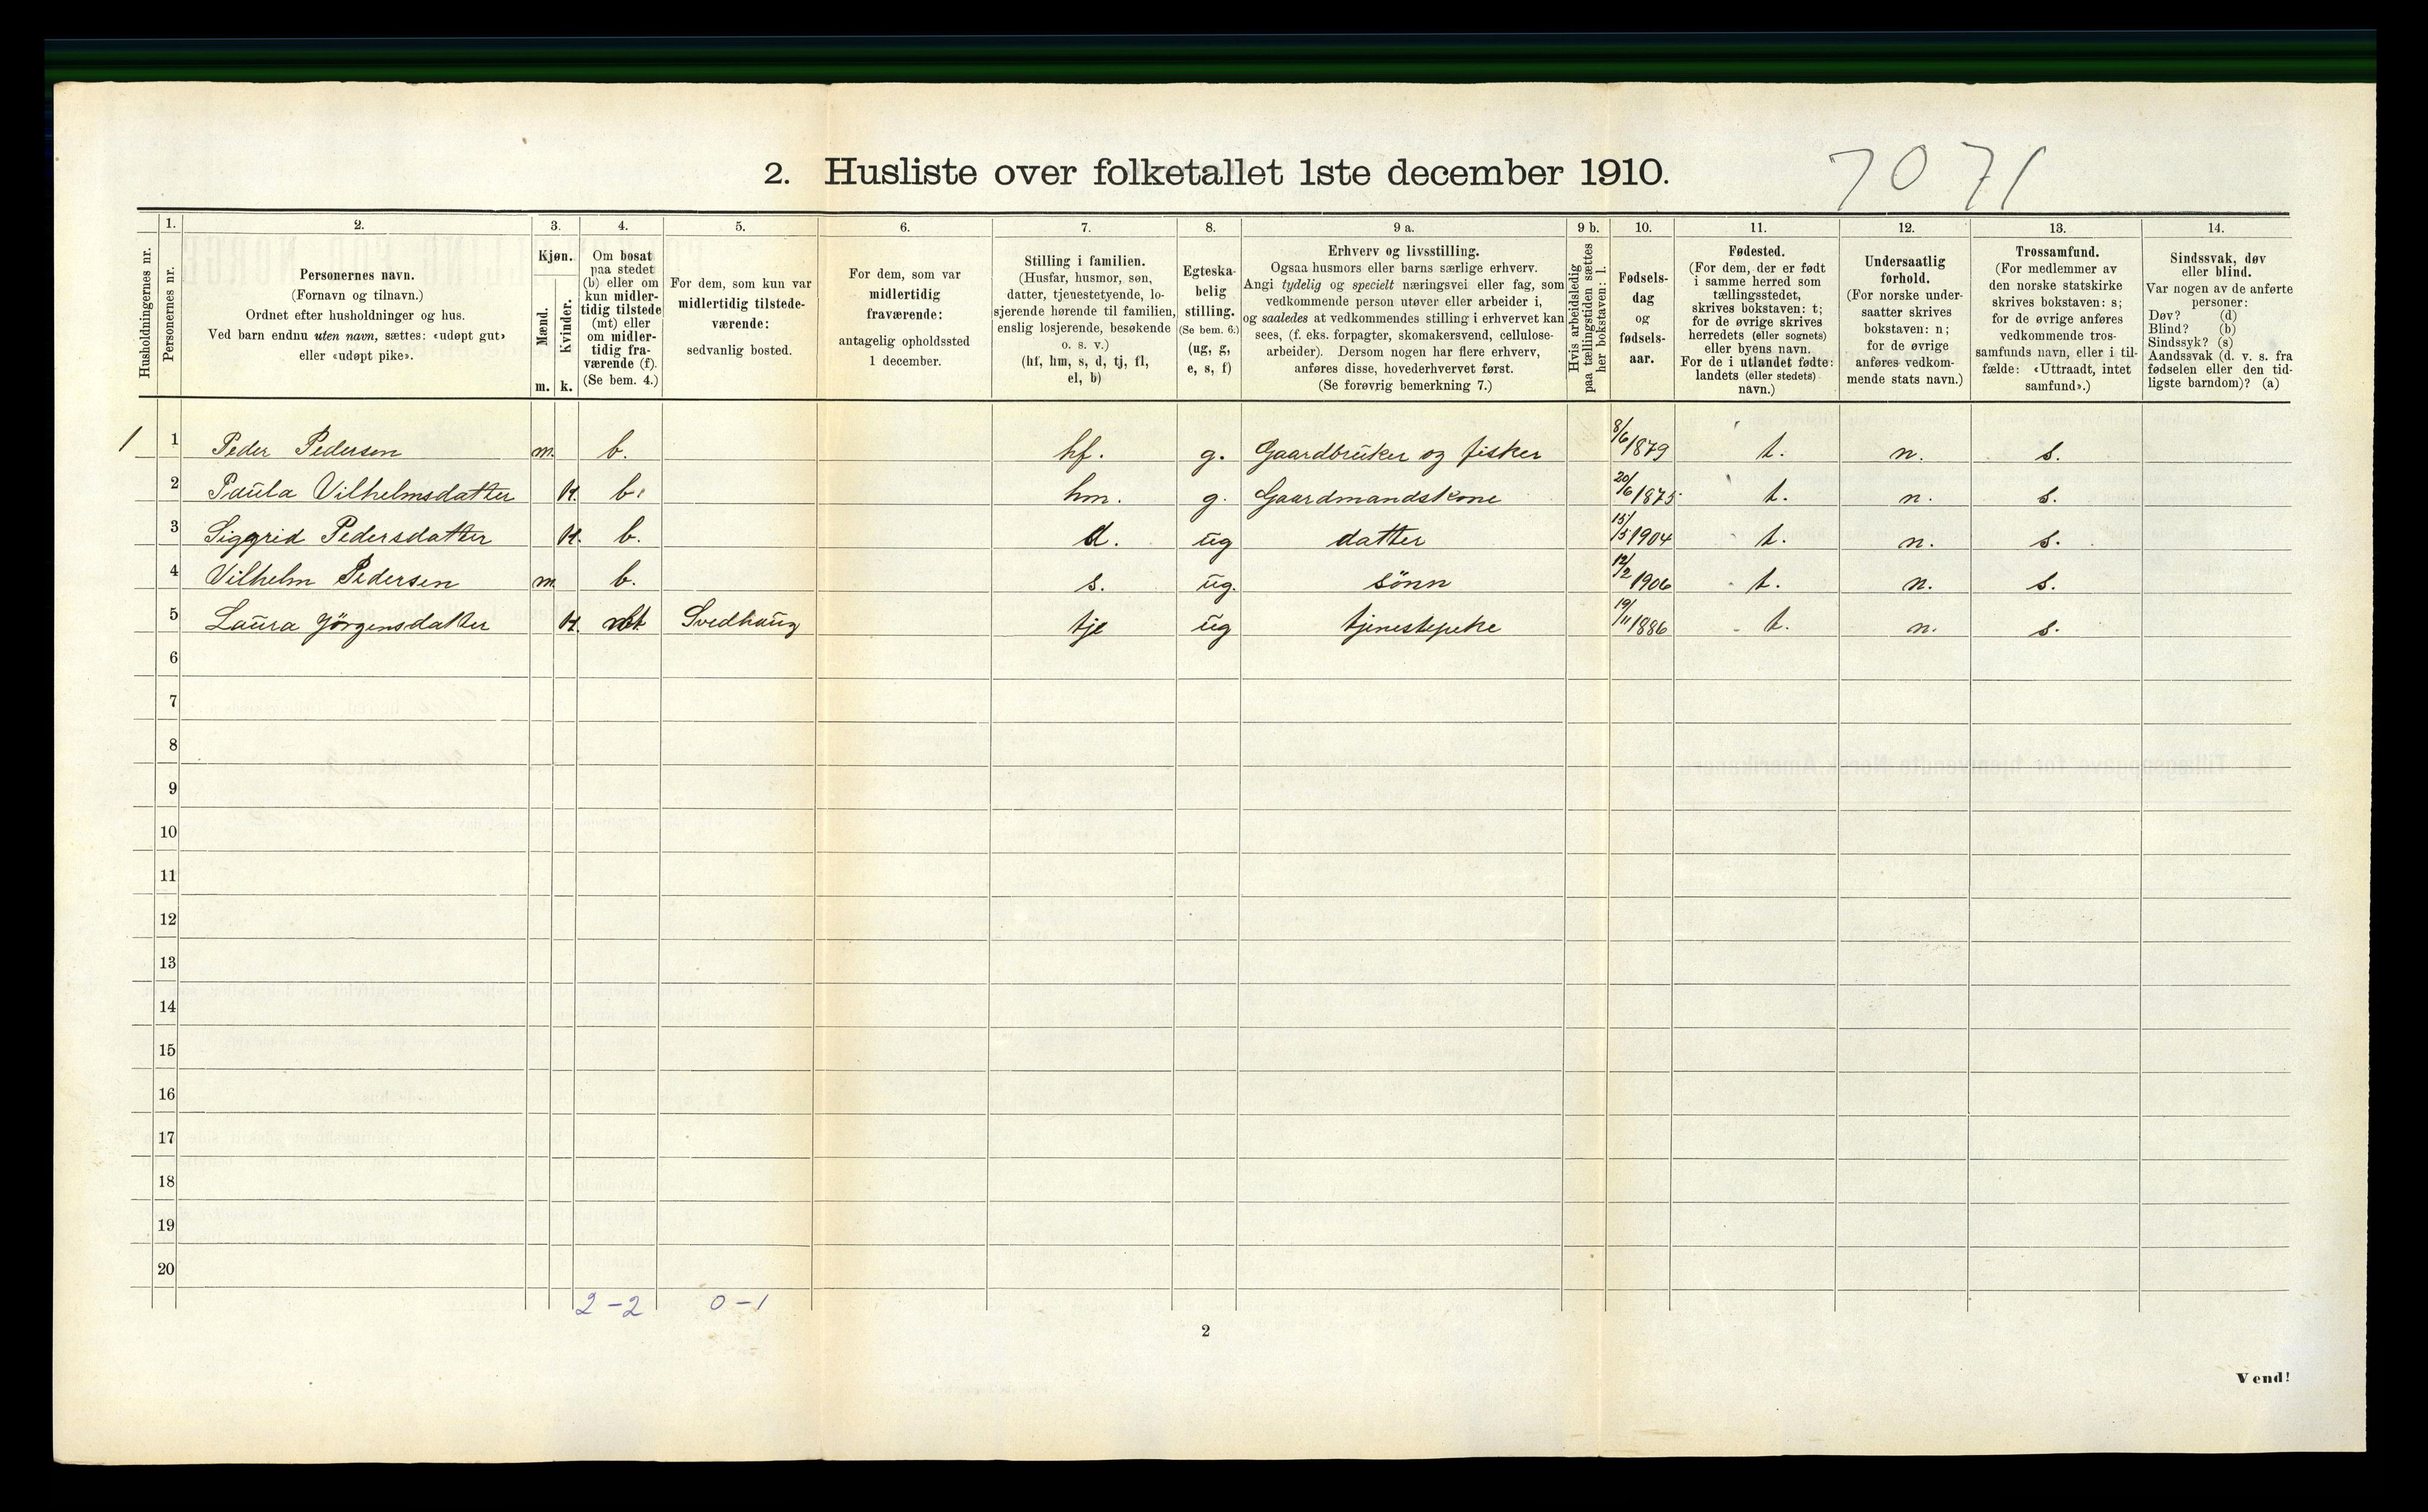 2. Husliste over folketallet 1ste december 1910.
7071
Husholdningernes nr.
1.
Personernes nr.
2.
Personernes navn.
(Fornavn og tilnavn.)
Ordnet efter husholdninger og hus.
Ved barn endnu uten navn, sættes: «udøpt gut»
eller «udøpt pike».
3.
Kjøn.
Mænd.
Kvinder.
m. k.
4.
Om bosat
paa stedet
(b) eller om
kun midler-
tidig tilstede
(mt) eller
om midler-
tidig fra-
værende (f).
(Se bem. 4.)
5.
For dem, som kun var
midlertidig tilstede-
værende:
sedvanlig bosted.
6.
For dem, som var
midlertidig
fraværende:
antagelig opholdssted
1 december.
7.
Stilling i familien.
(Husfar, husmor, søn,
datter, tjenestetyende, lo-
sjerende hørende til familien,
enslig losjerende, besøkende
o. s. v.)
(hf, hm, s, d, tj, fl,
el, b)
8.
Egteska-
belig
stilling.
(Se bem. 6.)
(ug, g,
e, s, f)
9 a.
Erhverv og livsstilling.
Ogsaa husmors eller barns særlige erhverv.
Angi tydelig og specielt næringsvei eller fag, som
vedkommende person utøver eller arbeider i,
og saaledes at vedkommendes stilling i erhvervet kan
sees, (f. eks. forpagter, skomakersvend, cellulose-
arbeider). Dersom nogen har flere erhverv,
anføres disse, hovederhvervet først.
(Se forøvrig bemerkning 7.)
9 b.
Hvis arbeidsledig
paa tællingstiden sættes
her bokstaven: l.
10.
Fødsels-
dag
og
fødsels-
aar.
11.
Fødested.
(For dem, der er født
i samme herred som
tællingsstedet,
skrives bokstaven: t;
for de øvrige skrives
herredets (eller sognets)
eller byens navn.
For de i utlandet fødte:
landets (eller stedets)
navn.)
12.
Undersaatlig
forhold.
(For norske under-
saatter skrives
bokstaven: n;
for de øvrige
anføres vedkom-
mende stats navn.)
13.
Trossamfund.
(For medlemmer av
den norske statskirke
skrives bokstaven: s;
for de øvrige anføres
vedkommende tros-
samfunds navn, eller i til-
fælde: «Uttraadt, intet
samfund».)
14.
Sindssvak, døv
eller blind.
Var nogen av de anførte
personer:
Døv? (d)
Blind? (b)
Sindssyk? (s)
Aandssvak (d. v. s. fra
fødselen eller den tid-
ligste barndom)? (a)
1 1 Peder Pedersen m. b. hf. g. Gaardbruker og fisker 8/6 1879 t. n. s.
2 Paula Vilhelmsdatter K. b. hm. g. Gaardmandskone 20/6 1875 t. n. s.
3 Siggrid Pedersdatter K. b. d. ug datter 15/5 1904 t. n. s.
4 Vilhelm Pedersen m. b. s. ug. sönn 12/2 1906 t. n. s.
5 Laura Jörgensdatter K. mt Svedhaug tje ug tjenestepeke 19/11 1886 t. n. s.
6
7
8
9
10
11
12
13
14
15
16
17
18
19
20
2-2 0-1
2
Vend!